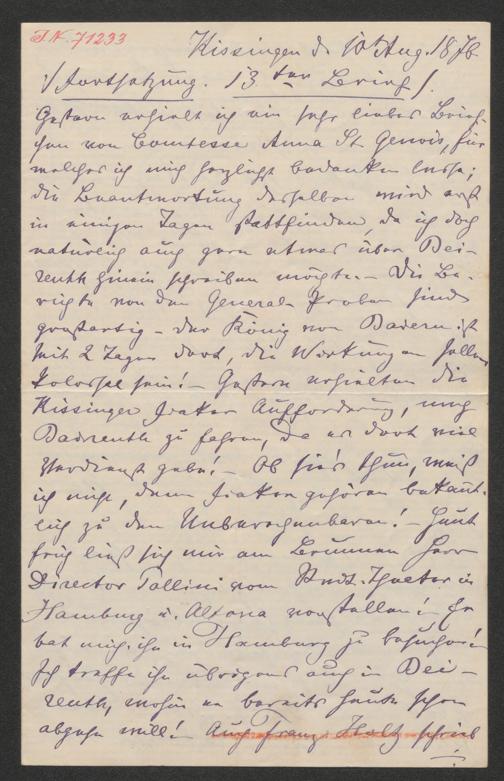 I.N. 71233
Kissingen d. 10t Aug. 1876
:/ Fortsetzung. 13ten Brief /:
Gestern erhielt ich ein sehr liebes Brief-
chen von Comtesse Anna St. Genois, für
welches ich mich herzlichst bedanken lasse;
die Beantwortung desselben wird erst
in einigen Tagen stattfinden, da ich doch
natürlich auch gern etwas über Bei-
reuth hinein schreiben möchte. – Die Be-
richte von den General-Proben sind
großartig – der König von Baiern ist
seit 2 Tagen dort, die Wirkungen sollen
kolossal sein! – Gestern erhielten die
Kissinger Fiaker Aufforderung, nach
Baireuth zu fahren, da es dort viel
Verdienst gebe! – Ob sie's thun, weiß
ich nicht, denn Fiaker gehören bekannt-
lich zu den Unberechenbaren! – Heut
früh ließ sich mir am Brunnen Herr
Director Pollini vom Stadt-Theater in
Hamburg u. Altona vorstellen! Er
bat mich, ihn in Hamburg zu besuchen!
Ich treffe ihn übrigens auch in Bei-
reuth, wohin er bereits heute schon
abgehn will! Auch Franz Holtz schrieb